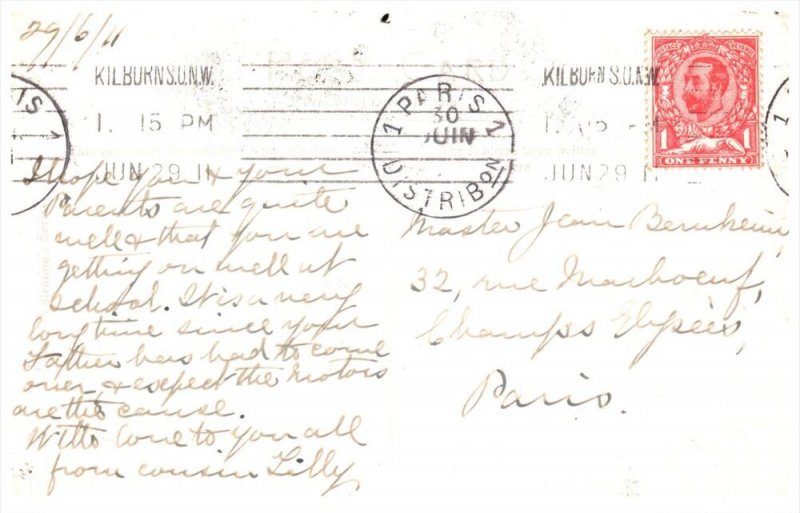 29/6/11
KILBURN S.O.N.W.
1. 15 PM
JUN 29 11
PARIS
1 1
30
JUIN
DISTRIBON
KILBURN S.O.N.W.
JUN 29 11
POSTAGE REVENUE
1 1
ONE PENNY
IS 1
I hope you & your
Parents are quite
well & that you are
getting on well at
school. It is a very
long time since your
Father has had to come
over, & expect the Motors
are the cause.
With love to you all
from cousin Lilly
Master Jean Bernheim,
32, rue Marboeuf,
Champs Elysées,
Paris.